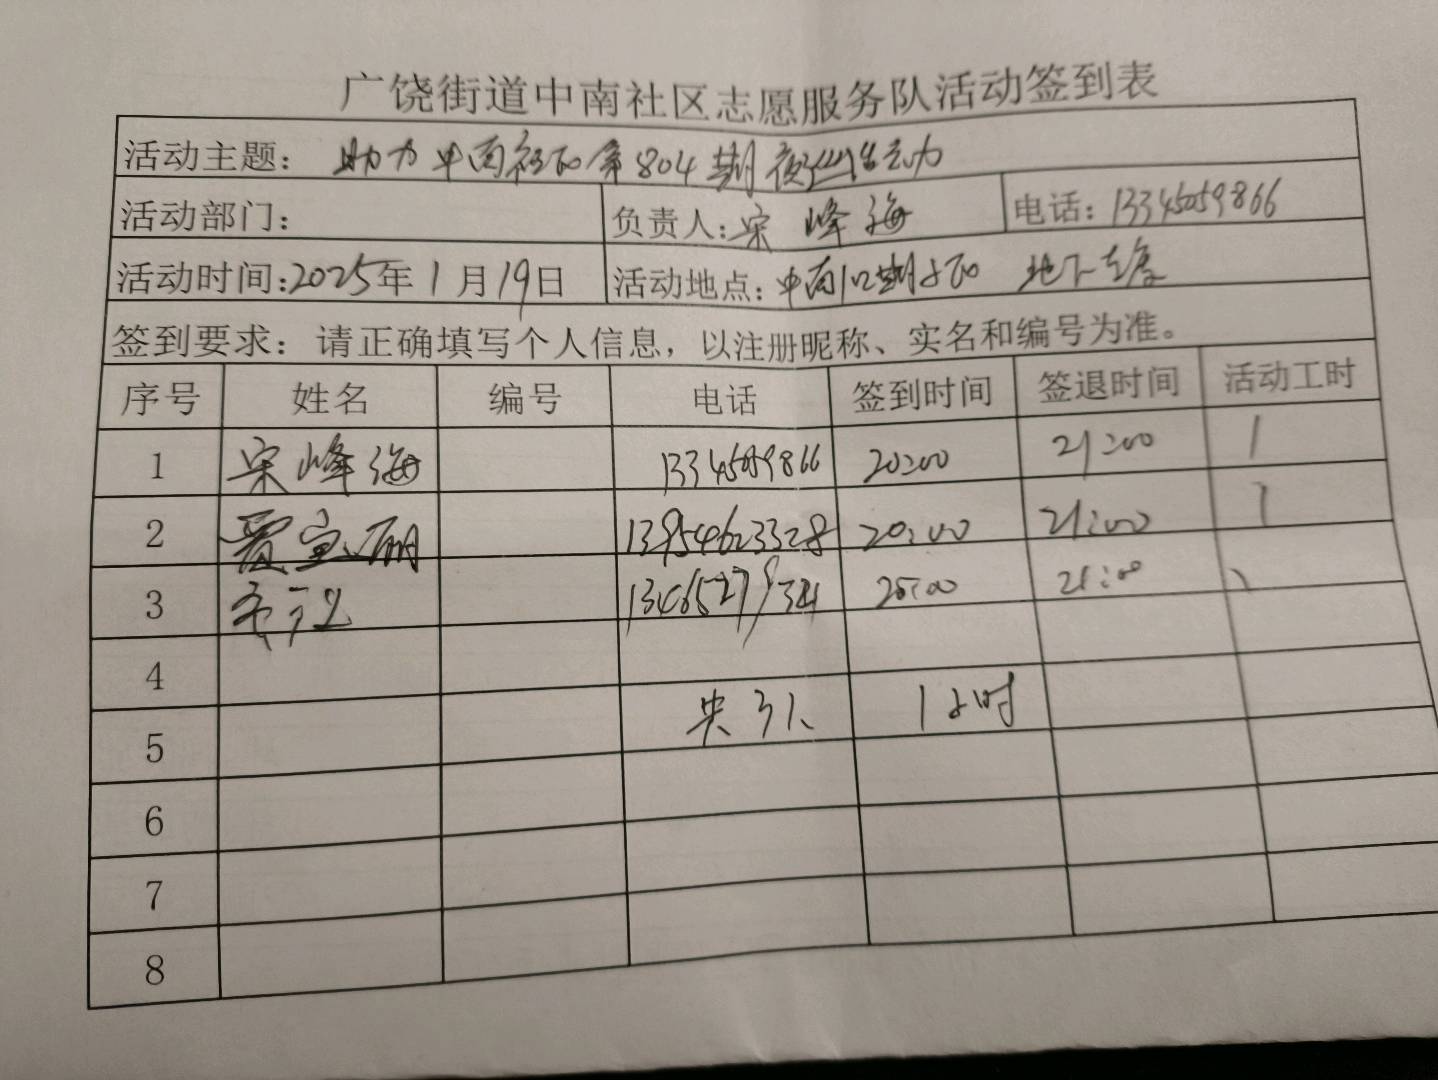 广饶街道中南社区志愿服务队活动签到表
活动主题： 助力中南社区第804期夜巡活动
活动部门： 负责人：宋峰海 电话：13345059866
活动时间：2025年1月19日 活动地点：中南 期小区 地下车库
签到要求：请正确填写个人信息，以注册昵称、实名和编号为准。
序号 姓名 编号 电话 签到时间 签退时间 活动工时
1 宋峰海 13345059866 20:00 21:00 1
2 贾宝丽 13954623328 20:00 21:00 1
3 20:00 21:00 1
4
5 共3人 1小时
6
7
8